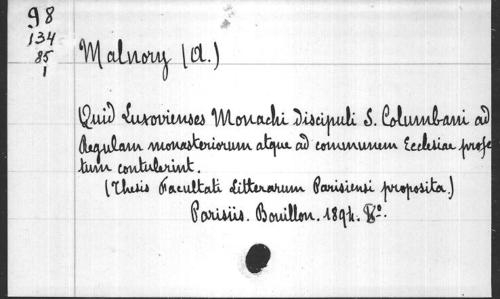 98
134
85
1
Malnory (A.)
Quid Luxovienses Monachi discipuli S. Columbani ad
Regulam monasteriorum atque ad communem Ecclesiae profec
tum contulerint.
(Thesis Facultati Litterarum Parisiensi proposita.)
Parisiis. Bouillon. 1894. 8º.